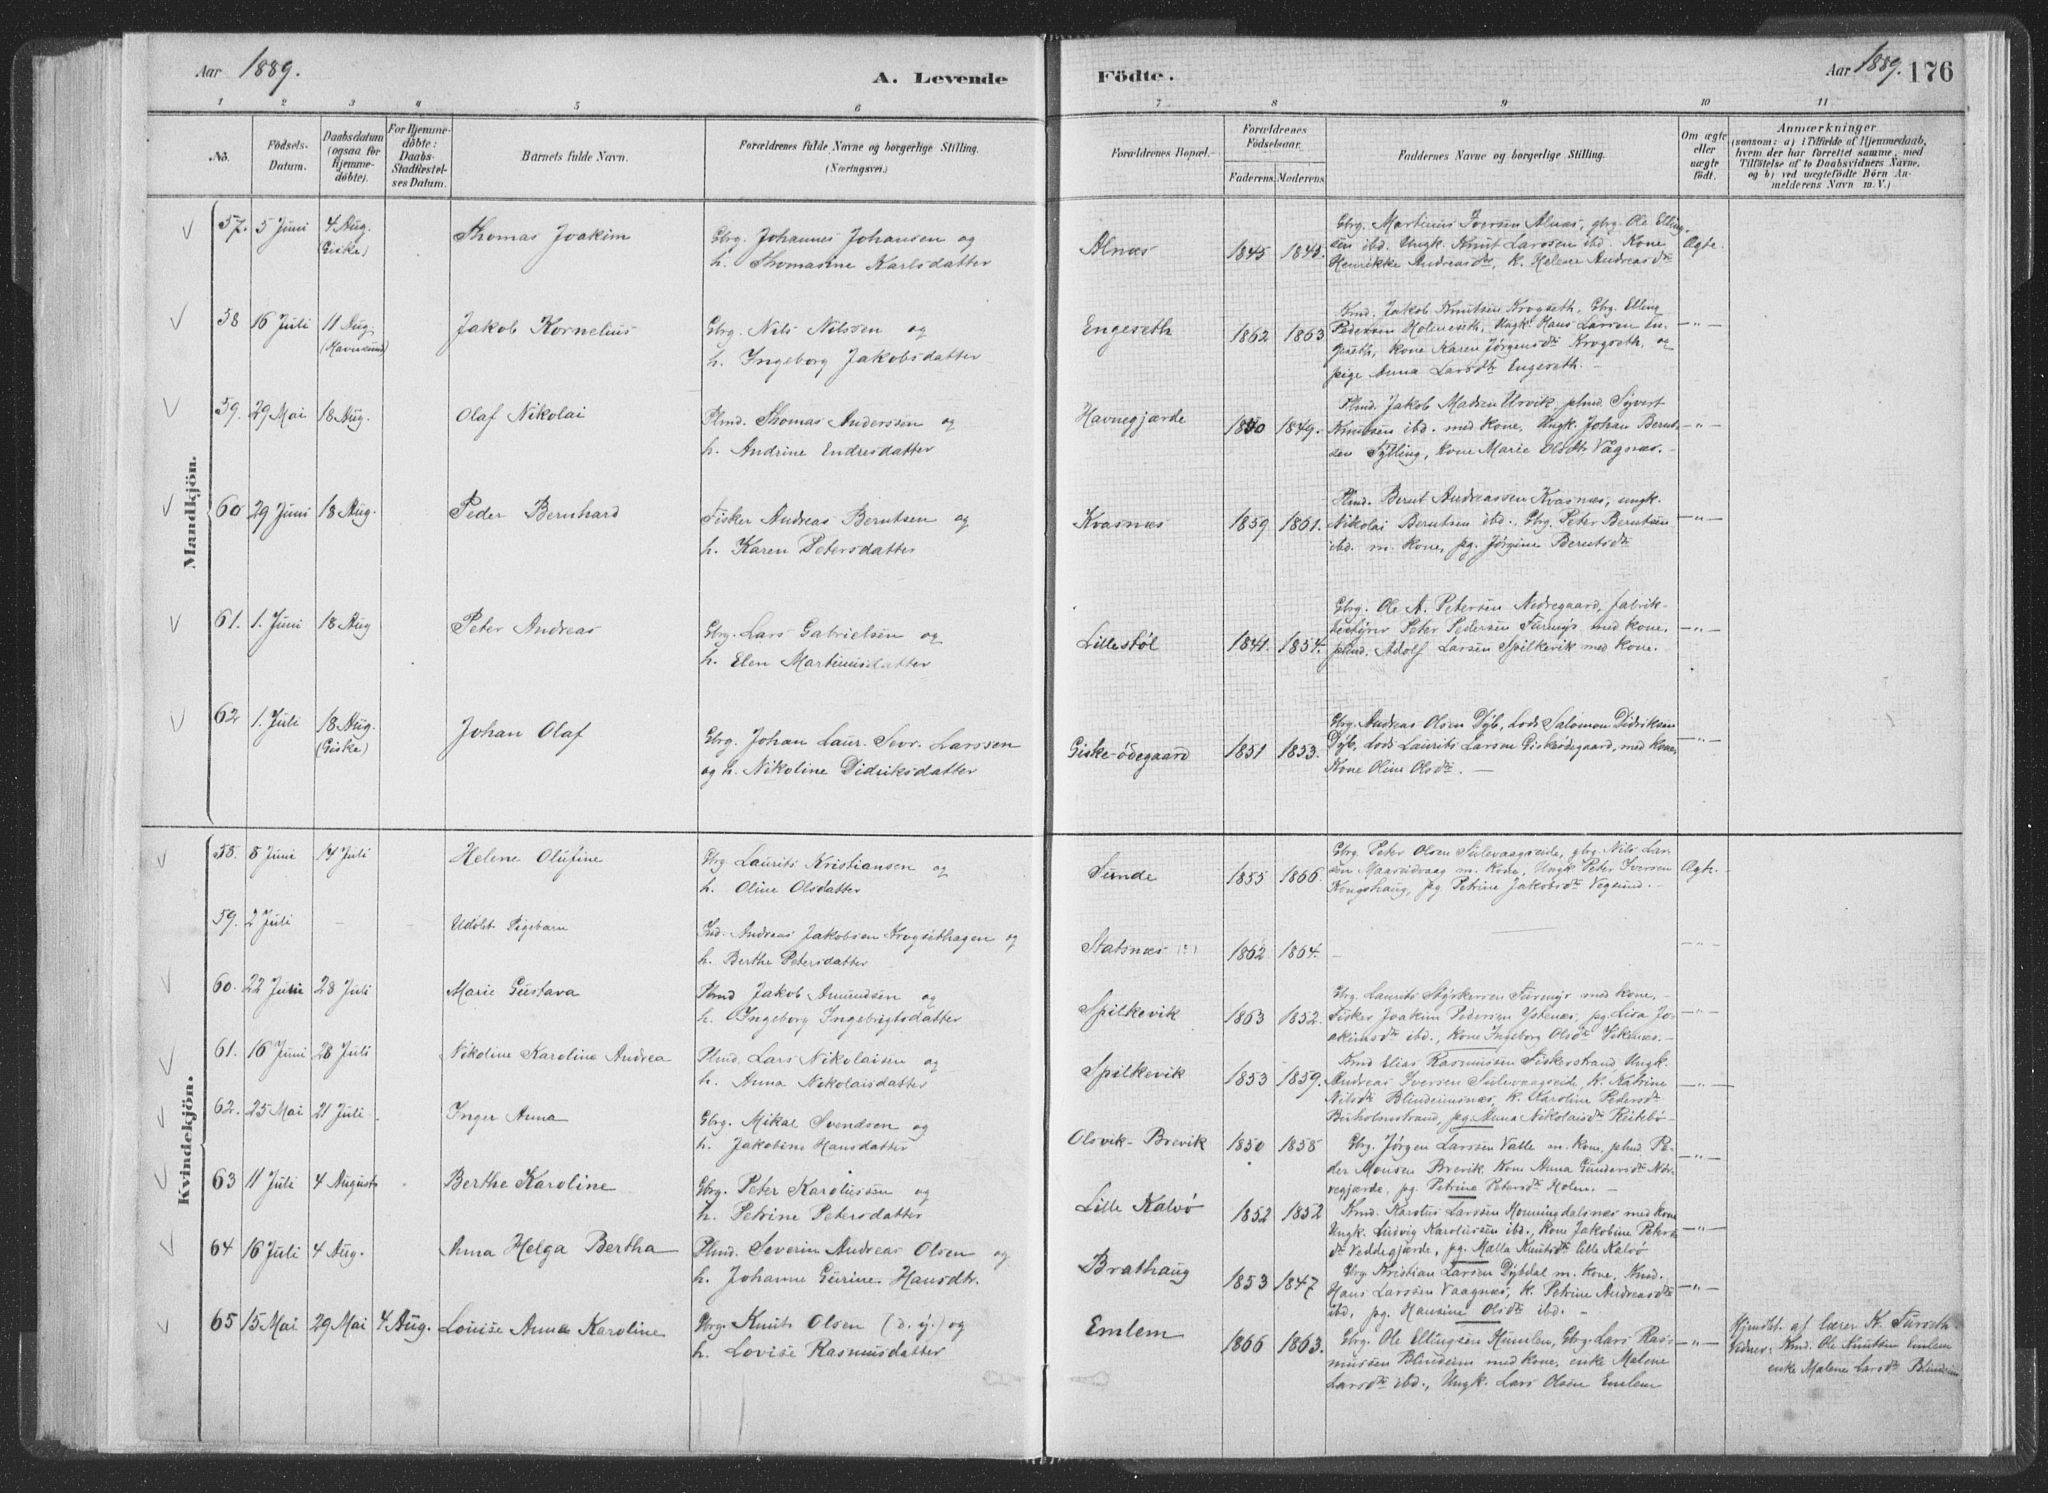 Aar 1889.
A. Levende
Födte.
Aar 1889. 176
1 2 3 4 5 6 7 8 9 10 11
No.
Födsels-
Datum.
Daabsdatum
(ogsaa for
Hjemme-
döbte).
For Hjemme-
döbte:
Daabs-
Stadfæstel-
ses Datum.
Barnets fulde Navn.
Forældrenes fulde Navne og borgerlige Stilling.
(Næringsvei.)
Forældrenes Bopæl.
Forældrenes
Födselsaar.
Faderens. Moderens.
Faddernes Navne og borgerlige Stilling.
Om ægte
eller
uægte
födt.
Anmærkninger
(saasom: a) i Tilfælde af Hjemmedaab,
hvem der har forrettet samme, med
Tilföielse af to Daabsvidners Navne,
og b) ved uægtefödte Börn An-
melderens Navn m. V.)
Mandkjön.
57. 5 Juni 4 Aug. (Giske) Thomas Joakim
Gbrg. Johannes Johansen og
h. Thomasine Karlsdatter
Alnæs 1845 1845.
Gbrg. Martinus Iversen Alnæs, gbrg. Ole Elling-
sen ibd. Ungk. Knut Larssen ibd. Kone
Henrikke Andreasdtr, K. Helene Andreasdtr
Ægte.
58 16 Juli 11 Aug. (Havnsund) Jakob Kornelius
Gbrg. Nils Nilssen og
h. Ingeborg Jakobsdatter
Engeseth 1862 1863
Kmd. Jakob Knutsen Krogseth, Gbrg. Elling
Pedersen Holmeseth, Ungk. Hans Larsen En-
geseth, Kone Karen Jørgensdtr Krogseth, og
pige Anna Larsdtr Engeseth. —
—"—
59. 29 Mai 18 Aug. Olaf Nikolai
Plmd. Thomas Anderssen og
h. Andrine Endresdatter
Havnegjærde 1850 1849.
Plmd. Jakob Madsen Urvik, plmd Syvert
Knutsen ibd. med Kone, Ungk. Johan Bernt-
sen Sylling, Kone Marie Olsdtr Vagnæs.
—"—
60 29 Juni 18 Aug. Peder Bernhard
Fisker Andreas Berntsen og
h. Karen Petersdatter
Kvasnæs 1859 1861.
Plmd. Bernt Andreassen Kvasnæs, ungk.
Nikolai Berntsen ibd., Gbrg. Peter Berntsen
ibd. m. Kone, pg. Jørgine Berntsdtr
—"—
61. 1. Juni 18 Aug Peter Andreas
Gbrg. Lars Gabrielsen og
h. Elen Martinusdatter
Lillestøl 1841. 1854.
Gbrg. Ole A. Petersen Nedregaard, fabrik-
bestyrer Peter Pedersen Furmyr med Kone,
plmd. Adolf Larsen Spilkevik med Kone.
—"—
62 1. Juli 18 Aug. (Giske) Johan Olaf
Gbrg. Johan Laur. Sevr. Larssen
og h. Nikoline Didriksdatter
Giske-ödegaard 1851 1853.
Gbrg. Andreas Olsen Dyb, Lods Salomon Didriksen
Dyb, Lods Laurits Larsen Giskeödegaard, med Kone,
Kone Oline Olsdtr. —
—"—
Kvindekjön.
58. 8 Juni 14 Juli Helene Olufine
Gbrg Laurits Kristiansen og
h. Oline Olsdatter
Sunde 1855 1866.
Gbrg. Peter Olsen Sulevaagseide, gbrg. Nils Lar-
sen Maaseidvaag m. Kone, Ungk Peter Iversen
Kongshaug, pg Petrine Jakobsdtr Vegsund. —
Ægte.
59. 2 Juli — Udöbt Pigebarn
Ind. Andreas Jakobsen Krogsethagen og
h. Berthe Petersdatter
Statsnæs (?) 1862 1864.
—"—
60. 22 Juni 28 Juli Marie Gustava
Plmd Jakob Amundsen og
h. Ingeborg Ingebrigtsdatter
Spilkevik 1863 1852.
Gbrg. Laurits Furmyr med Kone, —
Fisker Joakim Pedersen Ystenæs, pg. Lisa Jo-
akimsdtr ibd., Kone Ingeborg Olsdtr —
—"—
61. 16 Juni 28 Juli Nikoline Karoline Andrea
Plmd. Lars Nikolaisen og
h. Anna Nikolaisdatter
Spilkevik 1853 1859.
Kmd Elias Rasmussen Fiskerstrand, Ungk.
Andreas Iversen Sulevaagseid, K. Katrine
Nilsdtr Blindeimsnæs, K. Karoline Petersdtr
Buholmstrand, pg. Anna Nikolaisdtr Reitebø
—"—
62. 25 Mai 21 Juli Inger Anna
Gbrg. Mikal Svendsen og
h. Jakobine Hansdatter
Olsvik-Brevik 1850 1858
Gbrg. Jørgen Larssen Valle m. Kone, plmd Pe-
der Monsen Brevik, Kone Anna Gundersdtr
pg. Petrine Petersdtr Holen. —
—"—
63 11 Juli 4 August Berthe Karoline
Gbrg. Peter Karolussen og
h. Petrine Petersdatter
Lille Kalvø 1852 1852
Kmd. Karolus Larssen Honningdalsnæs med Kone
Ungk. Ludvig Karolussen ibd., Kone Jakobine Peters-
dtr Veddegjærde, pg. Malla Knutsdtr Lille Kalvø
—"—
64 16 Juli 4 Aug. Anna Helga Bertha
Plmd. Severin Andreas Olsen og
h. Johanne Gurine Hansdtr.
Brathaug 1853 1847
Gbrg Kristian Larsen Dybdal m. Kone, Kmd.
Hans Larssen Vaagnæs, K. Petrine Andreasdtr
ibd, pg. Hansine Olsdtr ibd. —
—"—
65 15 Mai 29 Mai 4 Aug. Louise Anna Karoline
Gbrg. Knut Olsen (d. y.) og
h. Lovise Rasmusdatter
Emlem 1866 1863.
Gbrg. Ole Ellingsen Humlen, Gbrg. Lars Ras-
mussen Blindeim med Kone, enke Malene
Larsdtr ibd., Ungk. Lars Olsen Emlem
—"—
Hjemdöbt af lærer K. Furseth.
Vidner: Kmd. Ole Knutsen Emlem
enke Malene Larsdtr Blindeim